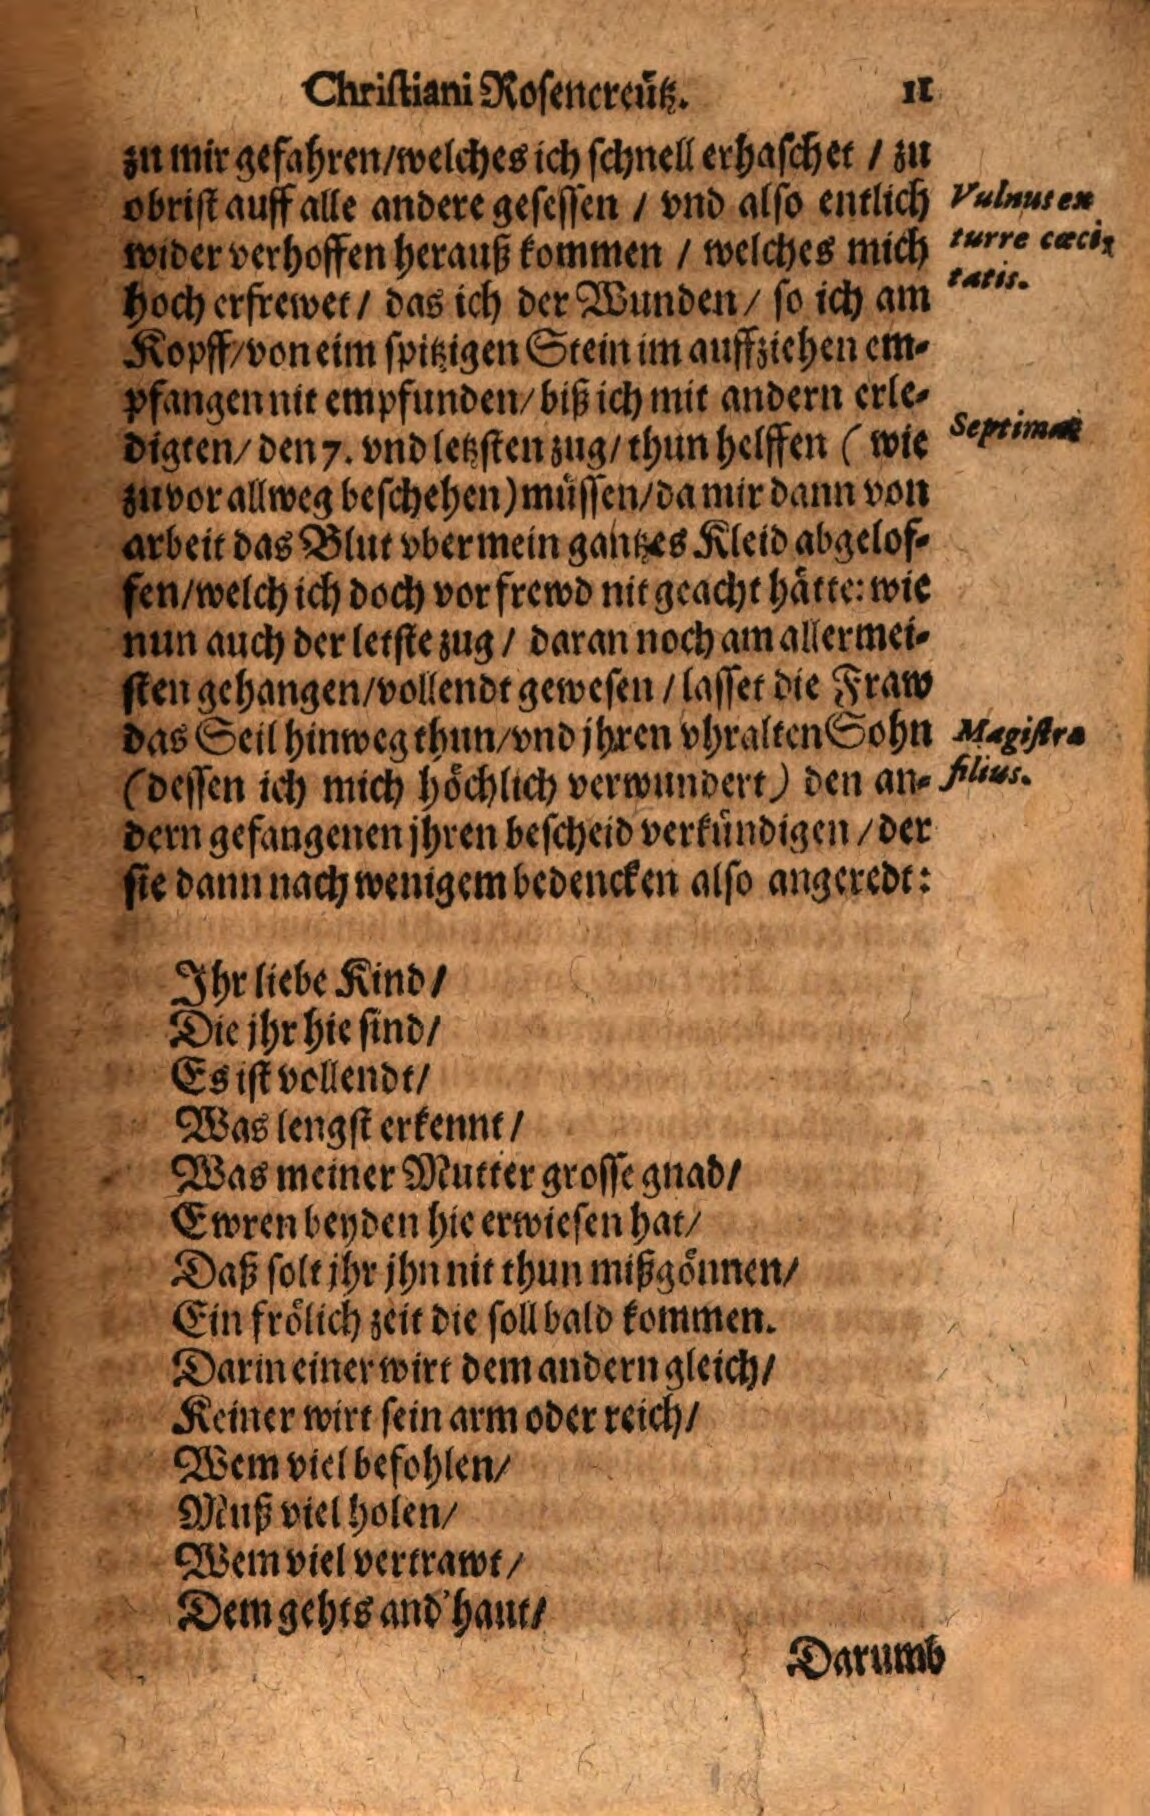 Christiani Rosencreütz. 11
zu mir gefahren/welches ich schnell erhaschet / zu
obrist auff alle andere gesessen / vnd also entlich
wider verhoffen herauß kommen / welches mich
hoch erfrewet / das ich der Wunden / so ich am
Kopff/von eim spitzigen Stein im auffziehen em-
pfangen nit empfunden/biß ich mit andern erle-
digten/den 7. vnd letzsten zug/thun helffen ( wie
zuvor allweg beschehen) müssen/da mir dann von
arbeit das Blut vber mein gantzes Kleid abgelof-
fen/welch ich doch vor frewd nit geacht hätte: wie
nun auch der letste zug / daran noch am allermei-
sten gehangen/vollendt gewesen / lasset die Fraw
das Seil hinweg thun/vnd jhren vhralten Sohn
(dessen ich mich höchlich verwundert) den an-
dern gefangenen jhren bescheid verkündigen / der
sie dann nach wenigem bedencken also angeredt:
Vulnus ex
turre cæci-
tatis.
Septimæ
Magistra
filius.
Ihr liebe Kind/
Die jhr hie sind/
Es ist vollendt/
Was lengst erkennt/
Was meiner Mutter grosse gnad/
Ewren beyden hie erwiesen hat/
Daß solt jhr jhn nit thun mißgönnen/
Ein frölich zeit die soll bald kommen.
Darin einer wirt dem andern gleich/
Keiner wirt sein arm oder reich/
Wem viel befohlen/
Muß viel holen/
Wem viel vertrawt/
Dem gehts and' haut/
Darumb